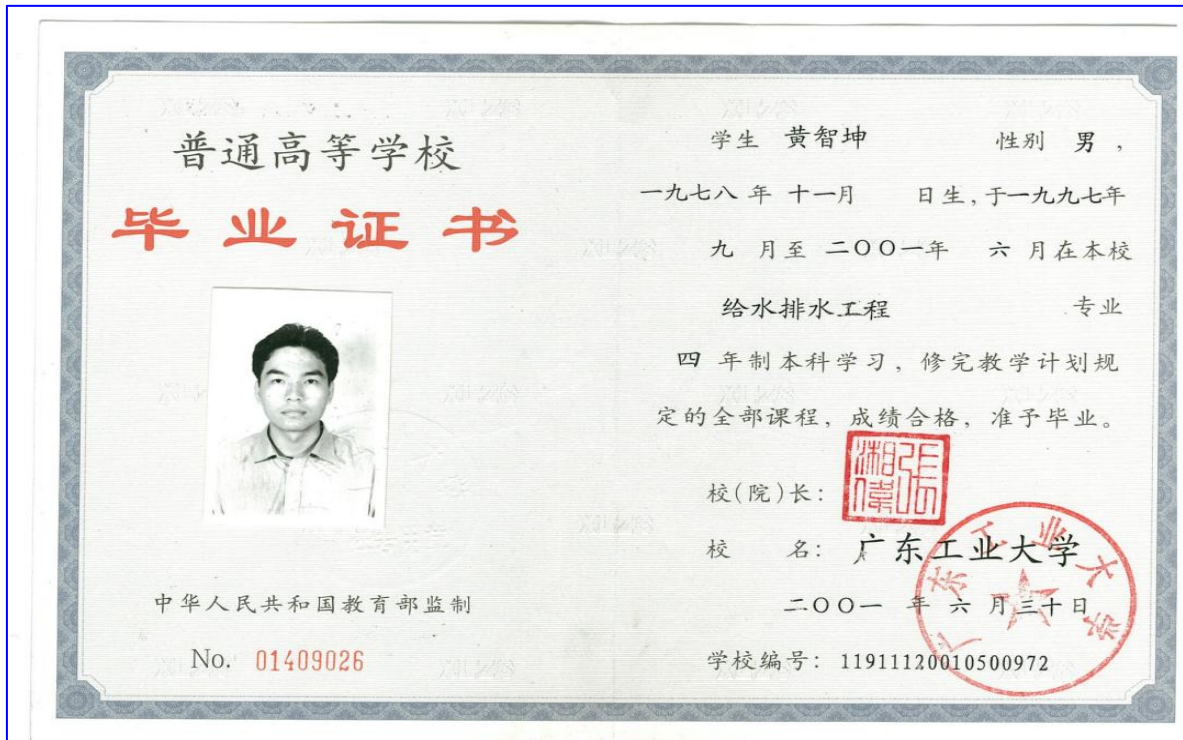 普通高等学校
毕业证书
中华人民共和国教育部监制
No. 01409026
学生 黄智坤 性别 男，
一九七八 年 十一月 日生，于一九九七年
九 月至 二〇〇一年 六 月在本校
给水排水工程 专业
四 年制本科学习，修完教学计划规
定的全部课程，成绩合格，准予毕业。
校(院)长：
張湘偉
校 名：广东工业大学
二〇〇一 年 六 月三十日
广东工业大学
学校编号：11911120010500972